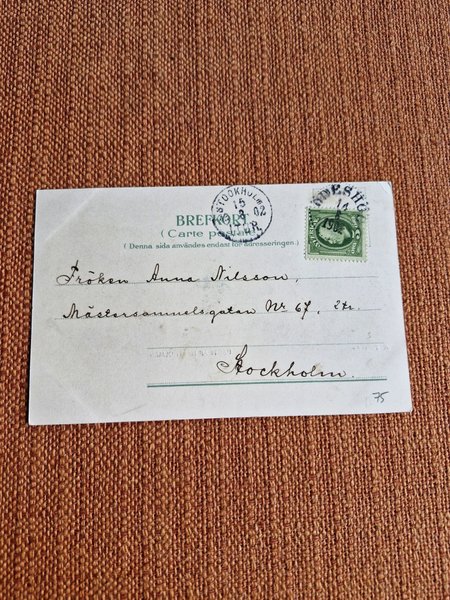 BREFKORT
(Carte postale)
(Denna sida användes endast för adresseringen.)
STOCKHOLM
15
02
ÖDESHÖ
14
1902
Fröken Anna Nilsson,
Mästersamuelsgatan No 67, 2tr.
Stockholm.
75